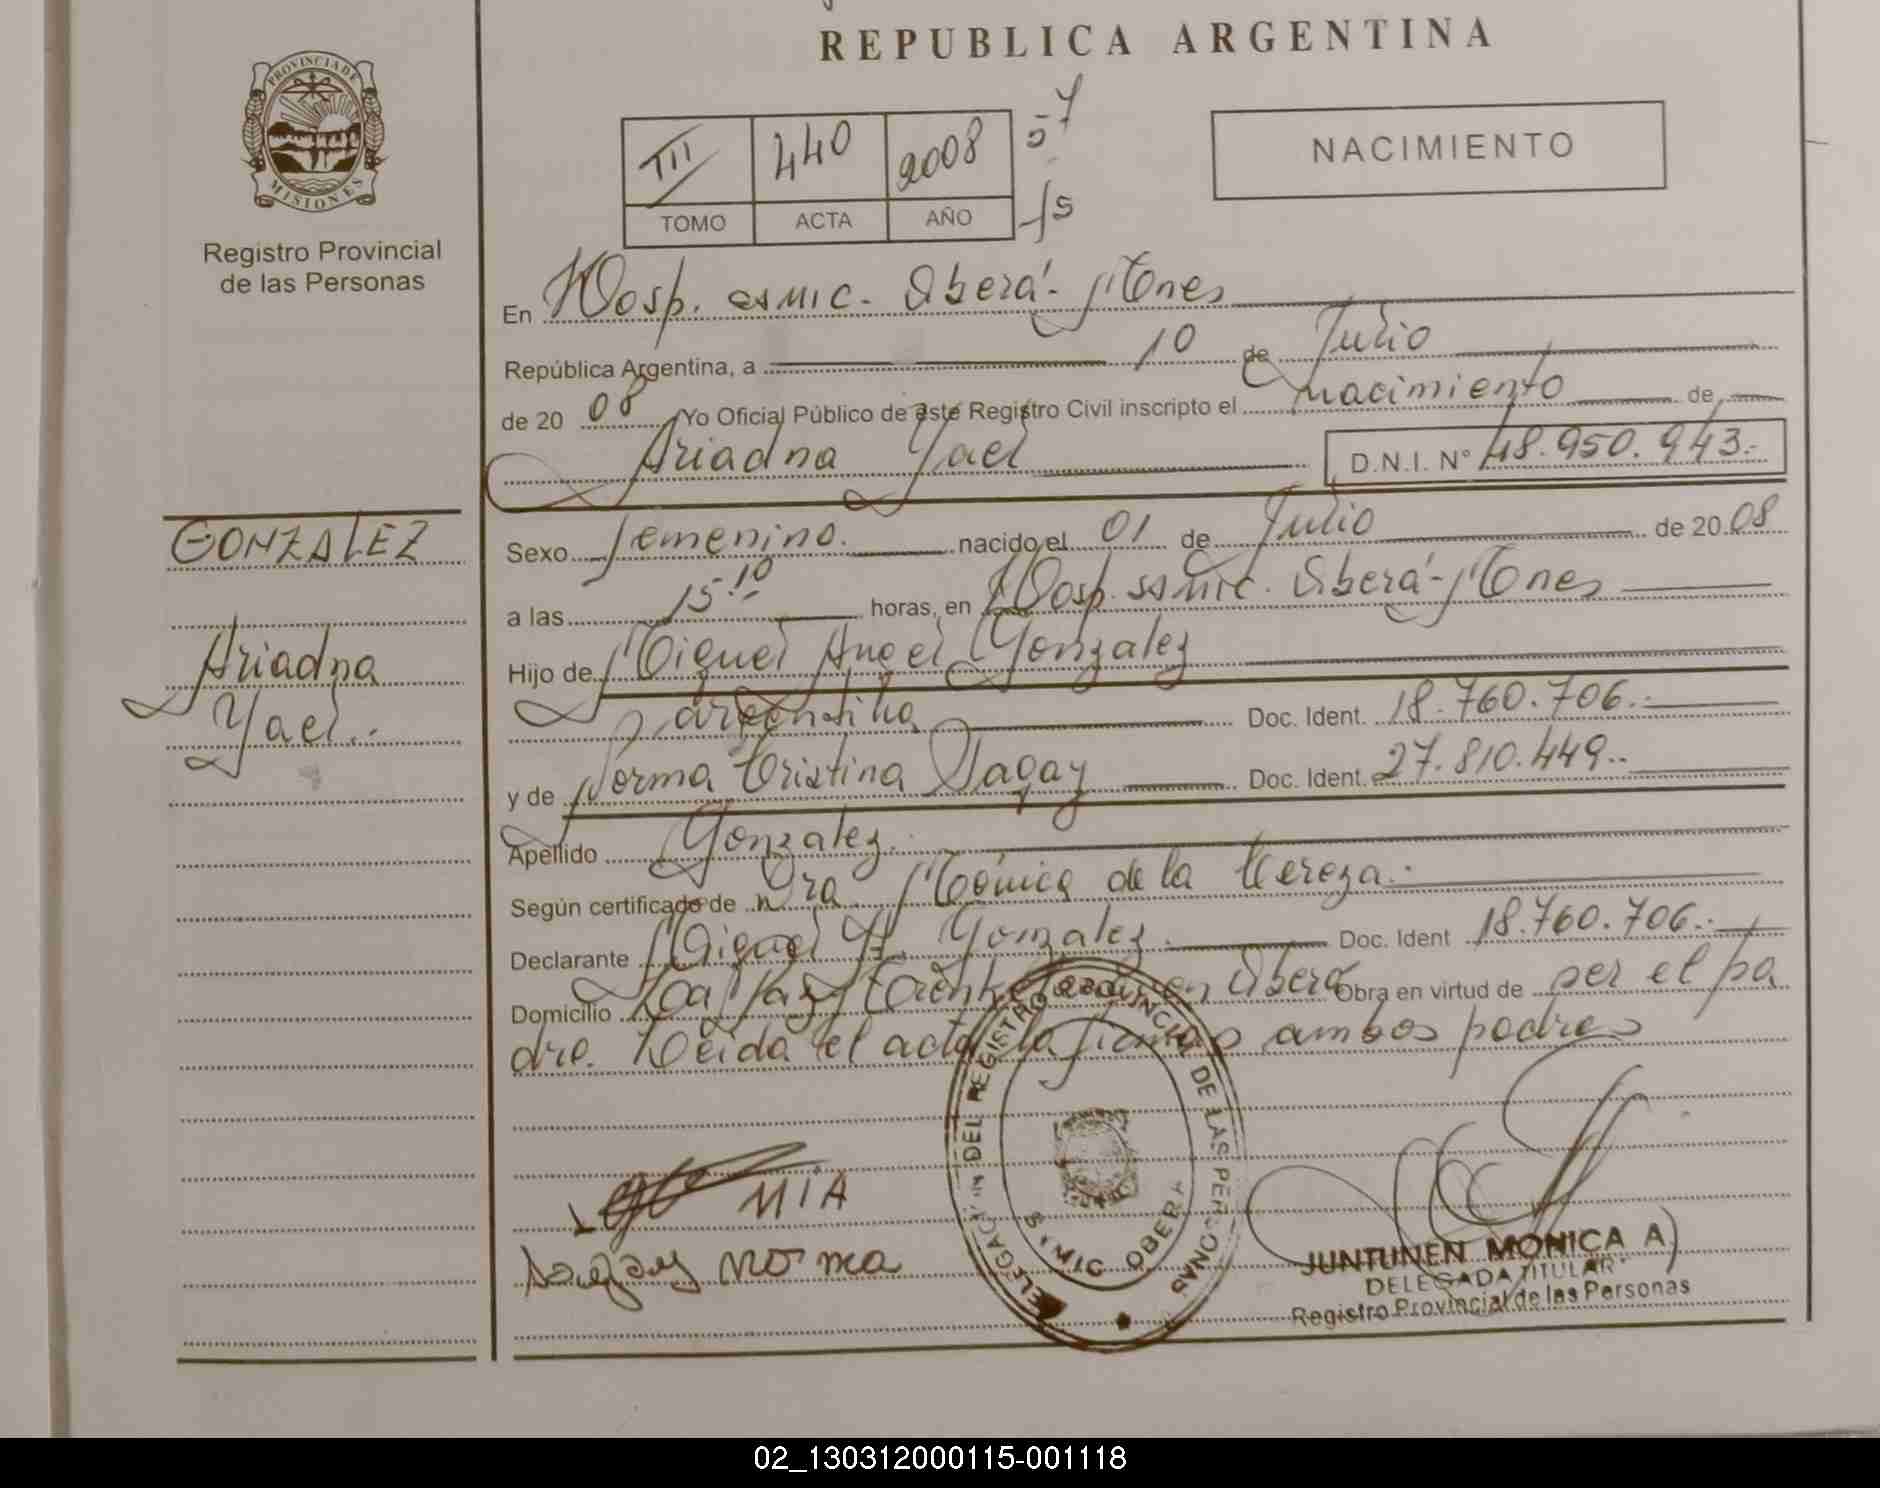 REPUBLICA ARGENTINA
PROVINCIA DE MISIONES
Registro Provincial
de las Personas
III 440 2008 57
TOMO ACTA AÑO
NACIMIENTO
En Hosp. Oberá - Mnes
República Argentina, a 10 de Julio
de 20 08 Yo Oficial Público de este Registro Civil inscripto el nacimiento de
Ariadna Yael D.N.I. N° 48.950.943.-
GONZALEZ
Ariadna
Yael.
Sexo femenino. nacido el 01 de Julio de 20 08
a las 15 10 horas, en Hosp. Oberá - Mnes
Hijo de Miguel Angel Gonzalez
argentino Doc. Ident. 18.760.706.-
y de Norma Cristina Dagay Doc. Ident. 27.810.449.-
Apellido Gonzalez.
Según certificado de Dra Mónica de la
Declarante Miguel A. Gonzalez. Doc. Ident 18.760.706.-
Domicilio Oberá Obra en virtud de ser el pa
dre. Leida el acta la firman ambos padres
MIA
Norma
DELEGACION DEL REGISTRO PROVINCIAL DE LAS PERSONAS
OBERA
JUNTUNEN MONICA A
DELEGADA TITULAR
Registro Provincial de las Personas
02_130312000115-001118